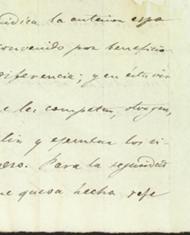 indica la anterior espo
convenido por beneficio
diferencia; y en esta vir
e les competen, otorgan,
lir y ejecutar los
pero. Para la seguridad
ne quesa hecha refe